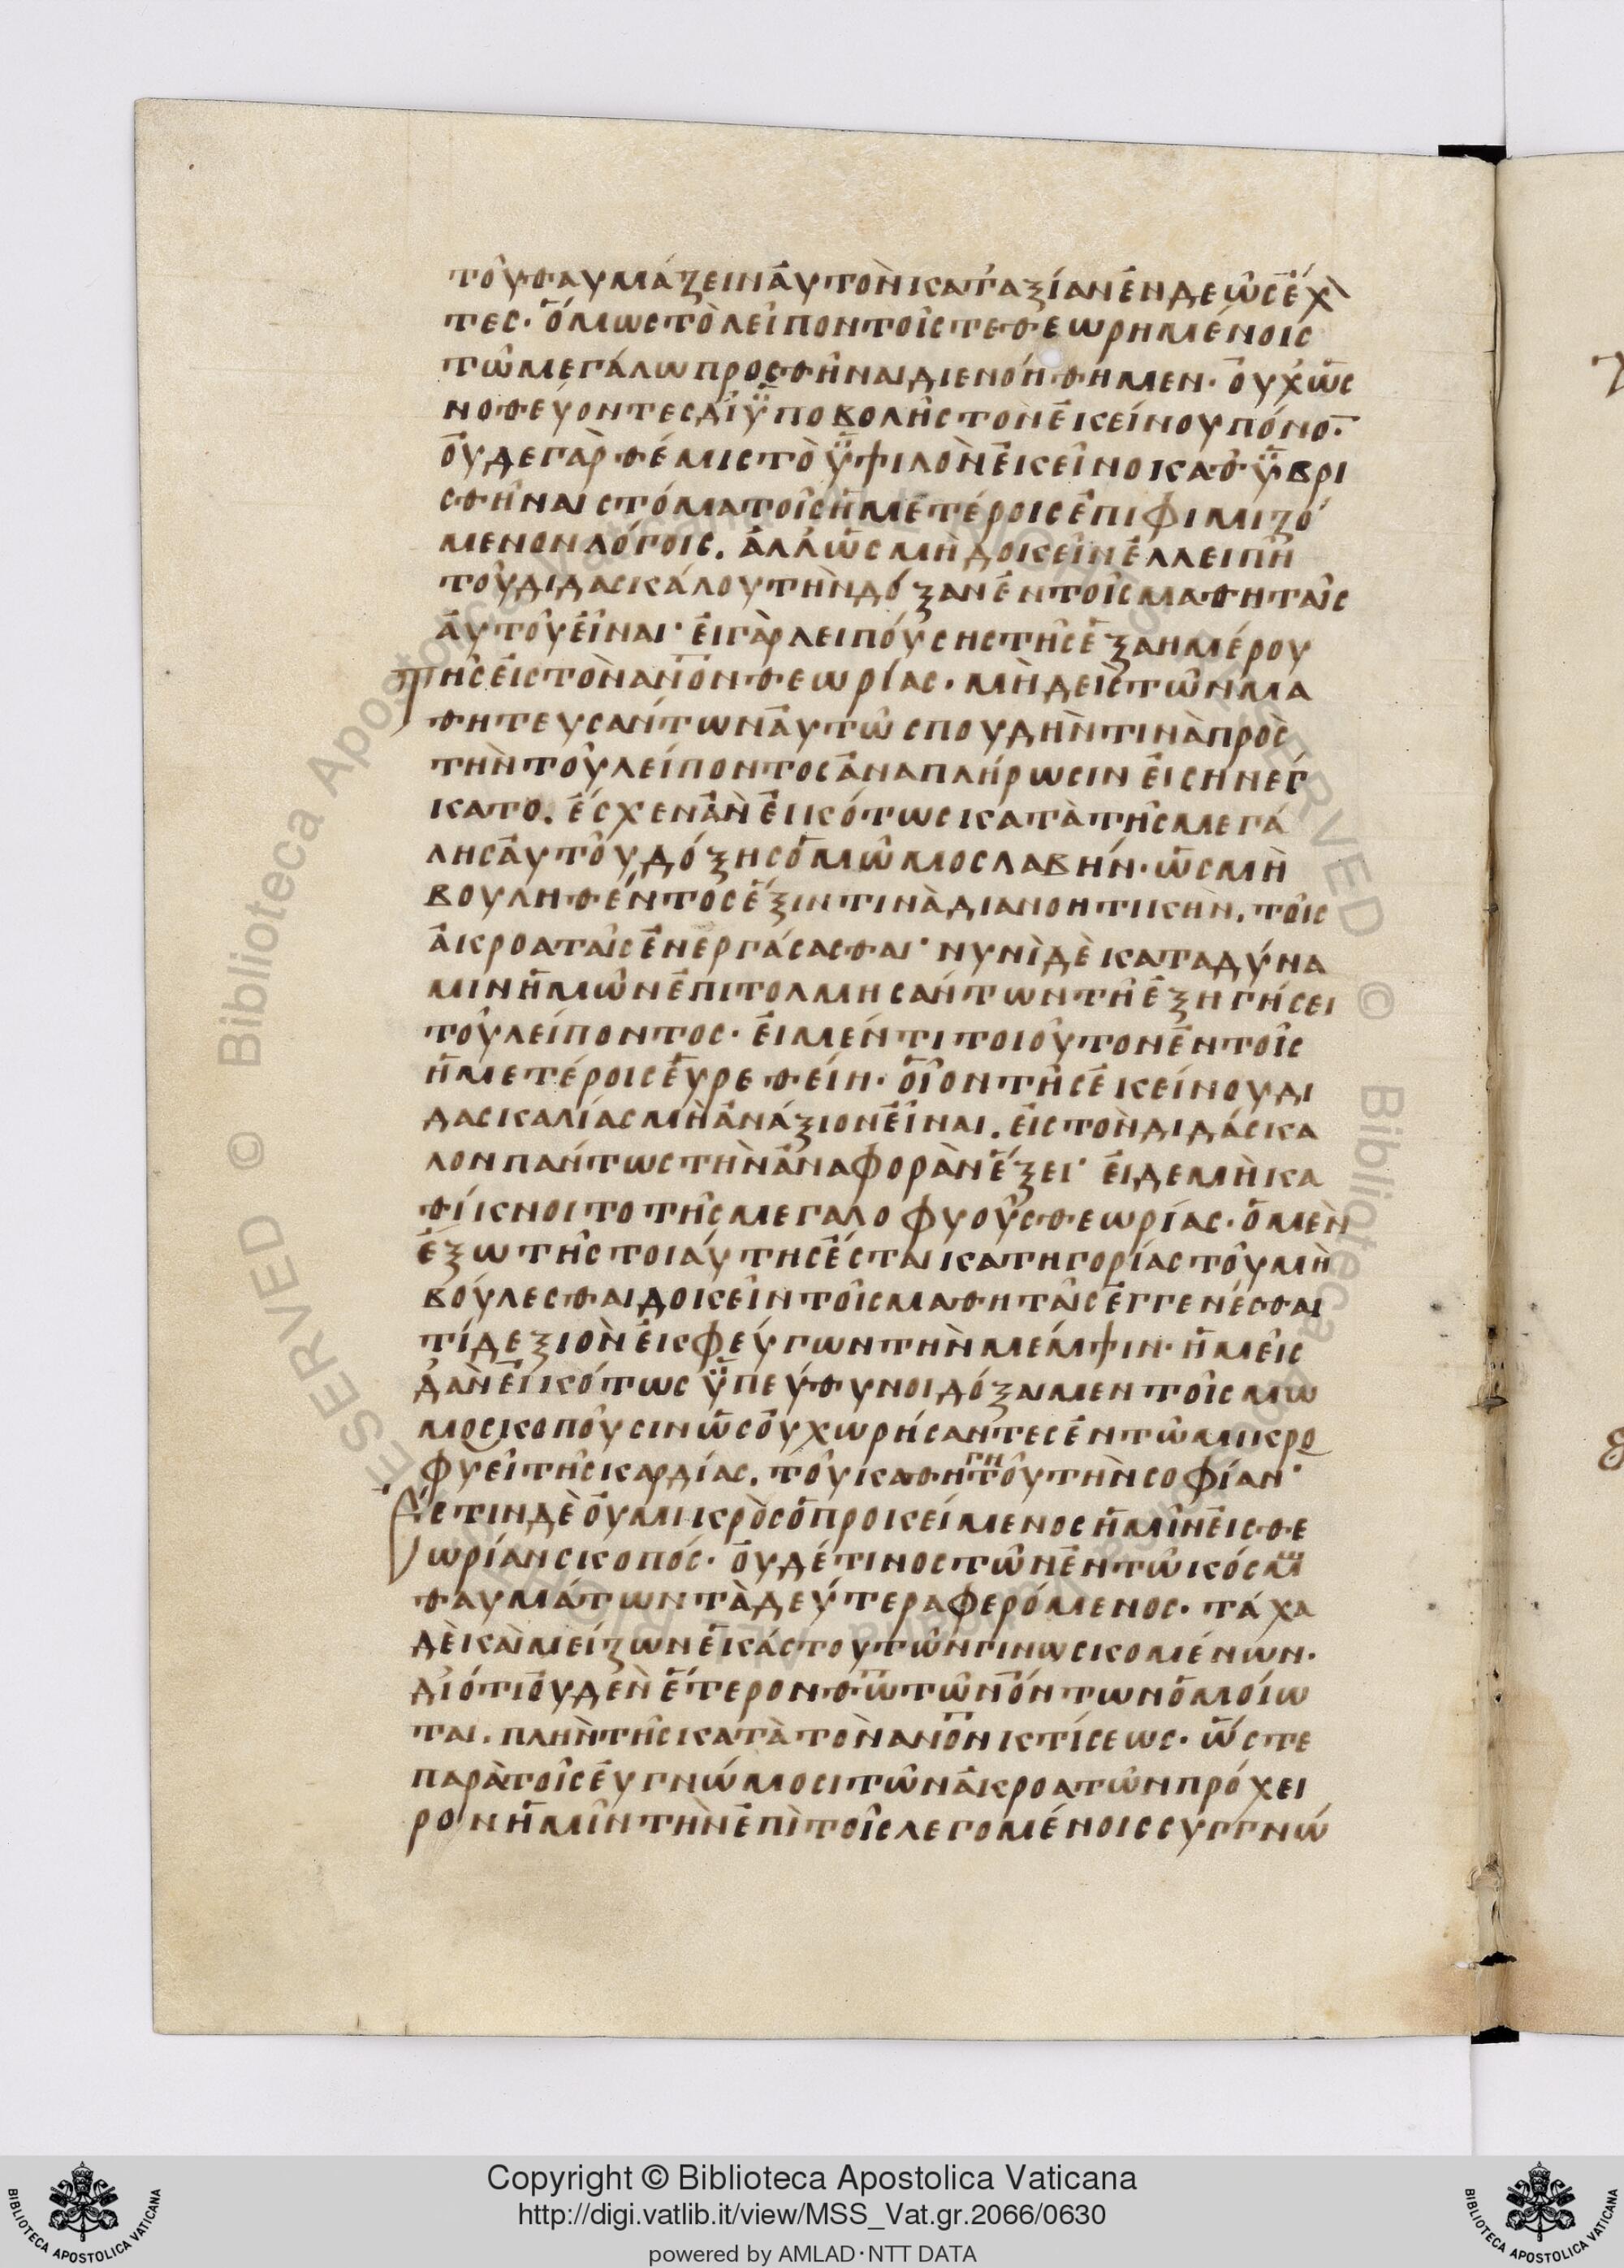 τοῦ θαυμάζειν ἀυτὸν κατ' ἀξίαν ἐνδεῶς ἔχ
τες· ὅμως τὸ λεῖπον τοῖς τεθεωρημένοις
τῶ μεγάλω προςθῆναι διενοήθημεν· ὀυχ ὡς
νοθεύοντες δι' ϋποβολῆς τὸν ἐκείνου πόνον·
ὀυδε γὰρ θέμις τὸ ϋψιλὸν ἐκεῖνο καθϋβρι
σθῆναι στόμα τοῖς ἡμετέροις ἐπιφιμιζό
μενον λόγοις. ἀλλ' ὡς μὴ δοκεῖν ἐλλειπῆ
τοῦ διδασκάλου τὴν δόξαν ἐν τοῖς μαθηταῖς
ἀυτοῦ εἶναι· ἐι γὰρ λειπούσης τῆς ἑξαημέρου
τῆς ἐις τὸν ανον θεωρίας· μὴδεὶς τῶν μα
θητευσάντων ἀυτῶ σπουδήν τινὰ πρὸς
τὴν τοῦ λείποντος ἀναπλήρωσιν ἐισηνέγ
κατο. ἔσχεν ἂν ἐικότως κατὰ τῆς μεγά
λης ἀυτοῦ δόξης ὁ μῶμος λαβήν· ὡς μὴ
βουληθέντος ἕξιν τινὰ διανοητικὴν. τοῖς
ἀκροαταῖς ἐνεργάσασθαι· νυνὶ δὲ κατα δύνα
μιν ἡμῶν ἐπιτολμησάντων τῆ ἐξηγήσει
τοῦ λείποντος· ἐι μέν τι τοιοῦτον ἐν τοῖς
ἡμετέροις ἑυρεθείη· ὁῖον τῆς ἐκείνου δι
δασκαλίας μὴ ἀνάξιον εἶναι. ἐις τὸν διδάσκα
λον πάντως τὴν ἀναφορὰν ἕξει· ἐι δε μὴ κα
θίκνοιτο τῆς μεγαλοφυοῦς θεωρίας· ὁ μὲν
ἔξω τῆς τοιάυτης ἔσται κατηγορίας τοῦ μὴ
βούλεσθαι δοκεῖν τοῖς μαθηταῖς ἐγγενέσθαι
τί δεξιὸν ἐκφεύγων τὴν μέμψιν· ἡμεῖς
δ' ἂν ἐικότως ϋπεύθυνοι δόξαιμεν τοῖς μω
μοσκοποῦσιν ὡς ὀυ χωρήσαντες ἐν τῶ μικρο
φυεῖ τῆς καρδίας. τοῦ καθηγητοῦ τὴν σοφίαν·
ἔστιν δὲ ὀυ μικρὸς ὁ προκείμενος ἡμῖν ἐις θε
ωρίαν σκοπός· ὀυδέ τινος τῶν ἐν τῶ κόσμω
θαυμάτων τὰ δεύτερα φερόμενος· τάχα
δὲ καὶ μείζων ἑκάστου τῶν γινωσκομένων·
διότι ὀυδὲν ἕτερον θω τῶν ὄντων ὁμοίω
ται. πλὴν τῆς κατὰ τὸν ανον κτίσεως· ὥστε
παρὰ τοῖς ἐυγνώμοσι τῶν ἀκροατῶν πρόχει
ρον ἡμῖν τὴν ἐπὶ τοῖς λεγομένοις συγγνώ
Copyright © Biblioteca Apostolica Vaticana
http://digi.vatlib.it/view/MSS_Vat.gr.2066/0630
powered by AMLAD·NTT DATA